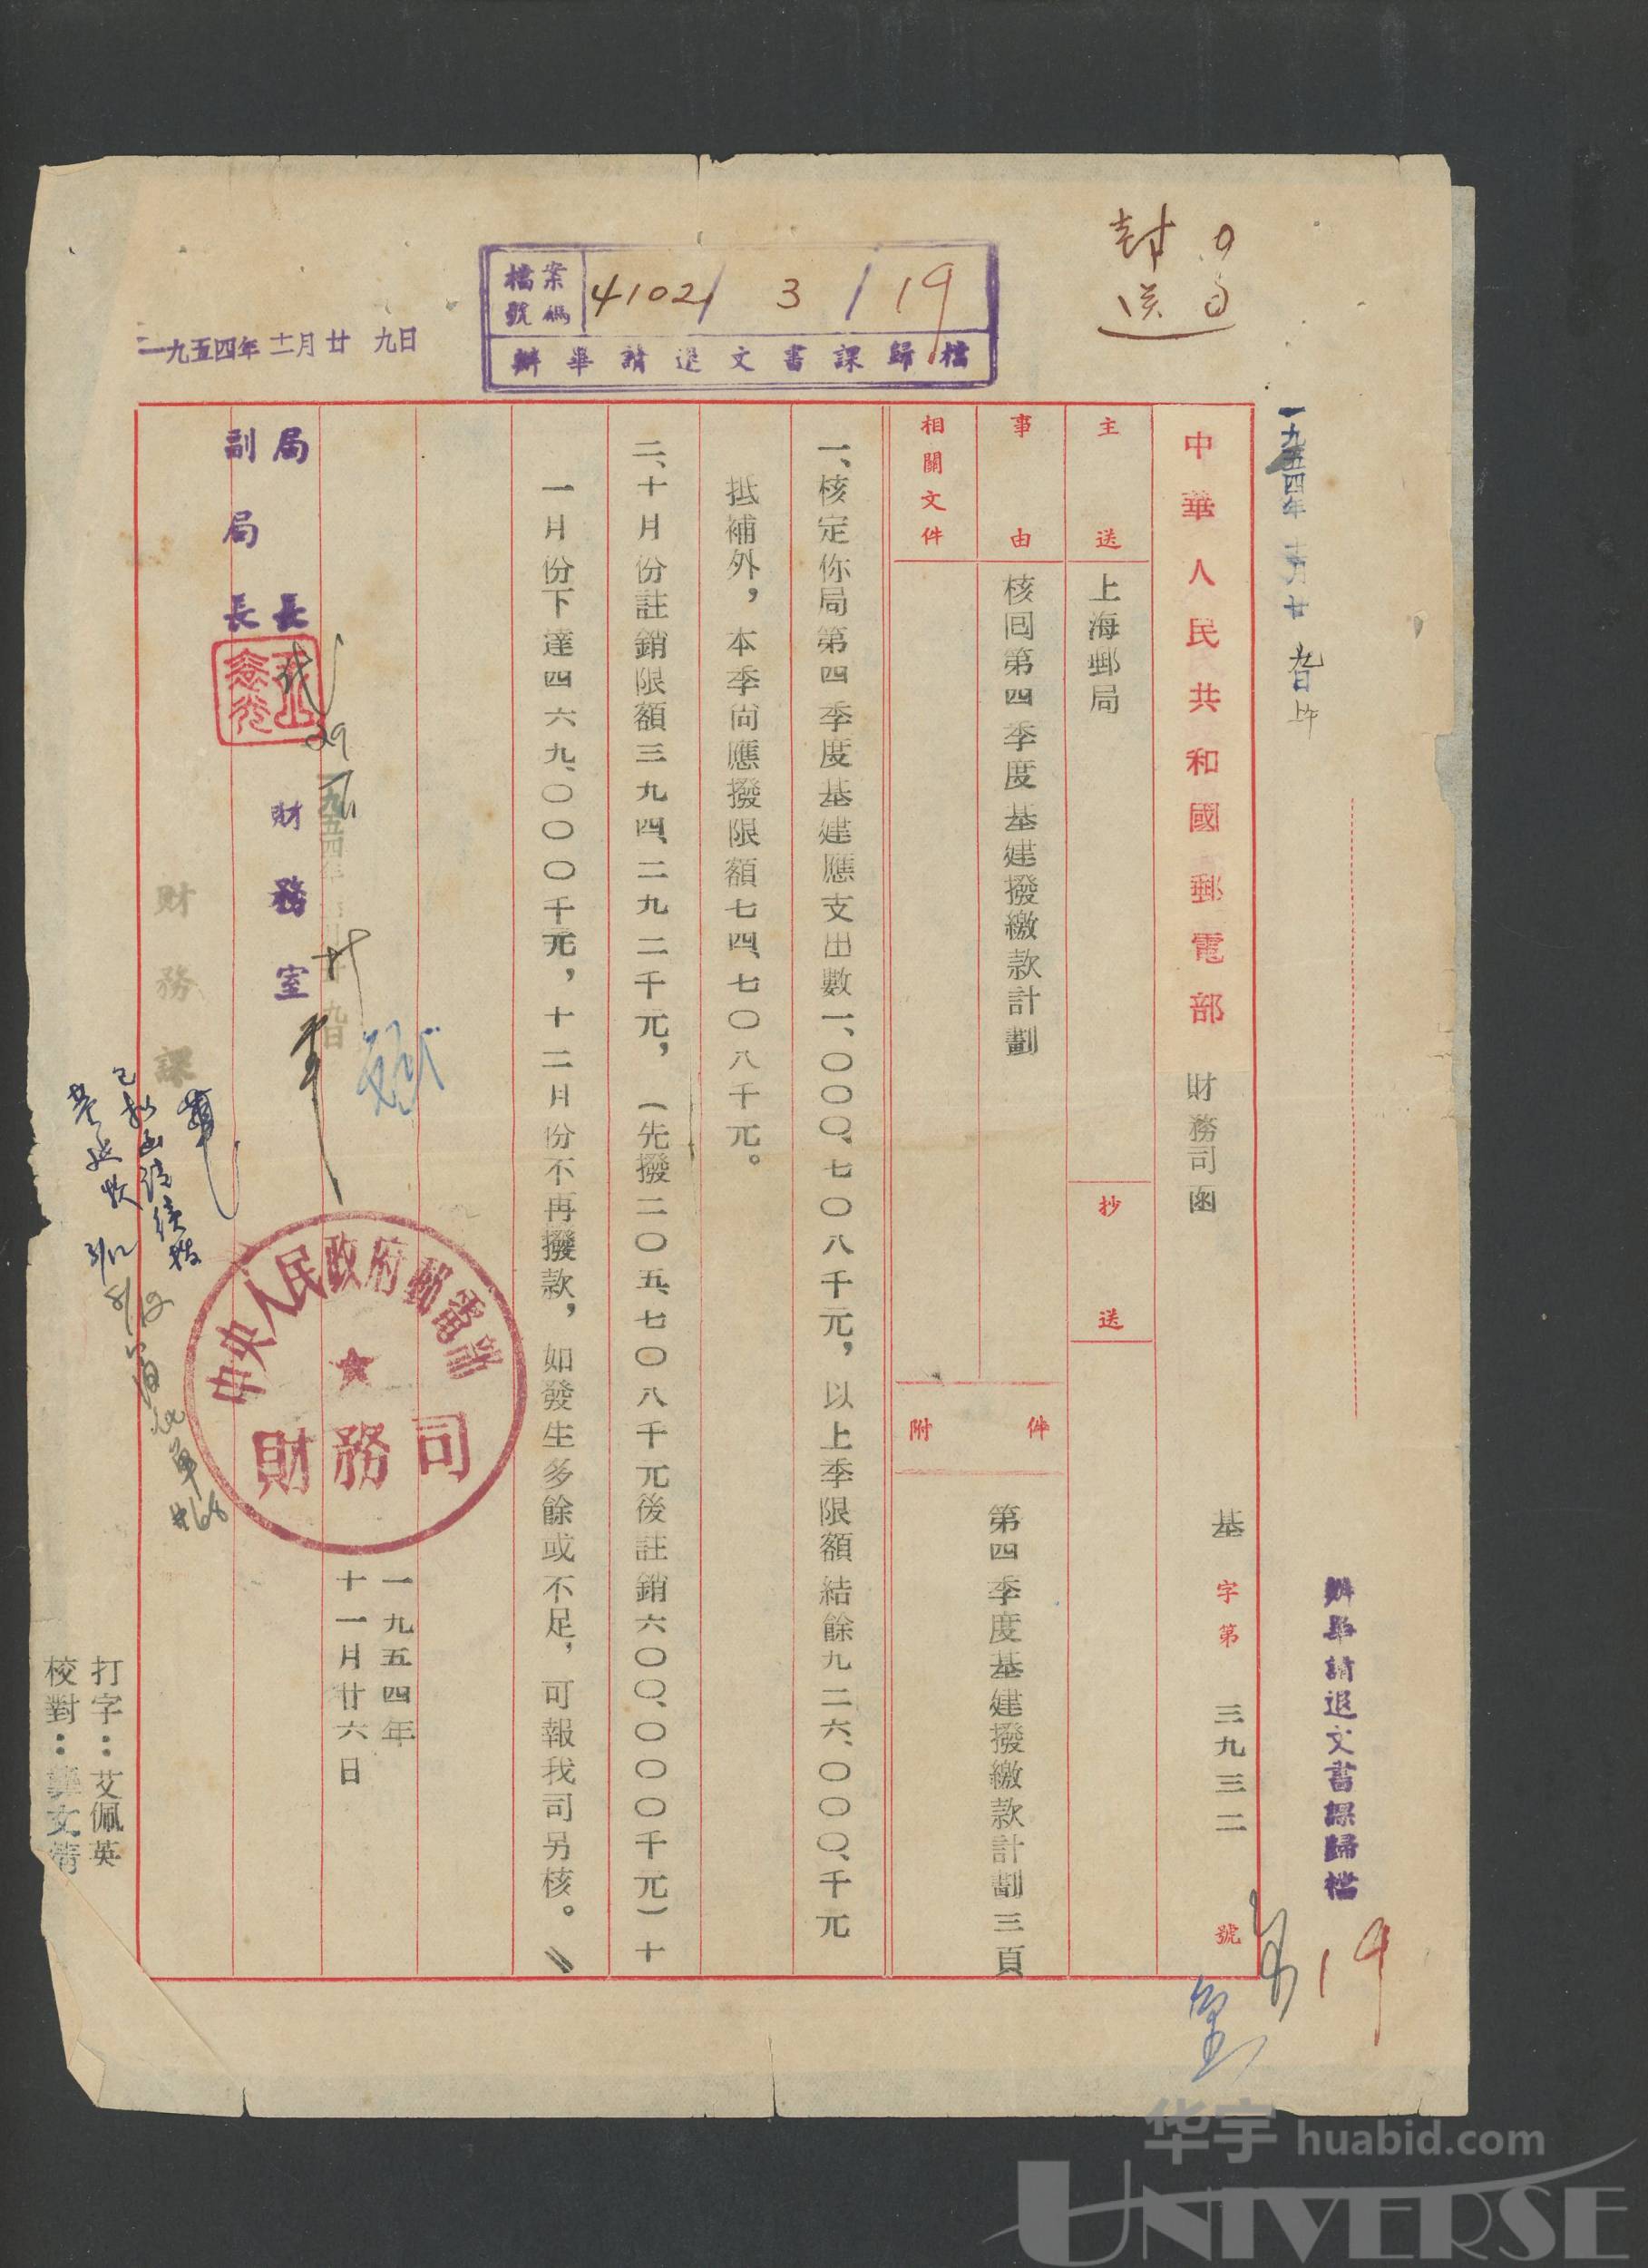 封
送
檔案號碼 41021 3 / 19
辦畢請退文書課歸檔
一九五四年十一月廿九日
一九五四年十一月廿九日上午
中華人民共和國郵電部 財務司函
基字第三九三二號
主送 上海郵局
抄送
事由 核回第四季度基建撥繳款計劃
相關文件
附件 第四季度基建撥繳款計劃三頁
一、核定你局第四季度基建應支出數一、〇〇〇、七〇八千元，以上季限額結餘九二六、〇〇〇、千元
抵補外，本季尚應撥限額七四、七〇八千元。
二、十月份註銷限額三九四、二九二千元，（先撥二〇五、七〇八千元後註銷六〇〇、〇〇〇千元）十
一月份下達四六九、〇〇〇千元，十二月份不再撥款，如發生多餘或不足，可報我司另核。
一九五四年
十一月廿六日
中央人民政府郵電部
財務司
局長
副局長
29
財務室
一九五四年十一月廿九日
財務課
已
3/12
8/12
#68
打字：艾佩英
校對：文清
辦畢請退文書課歸檔
19
华宇 huabid.com
UNIVERSE